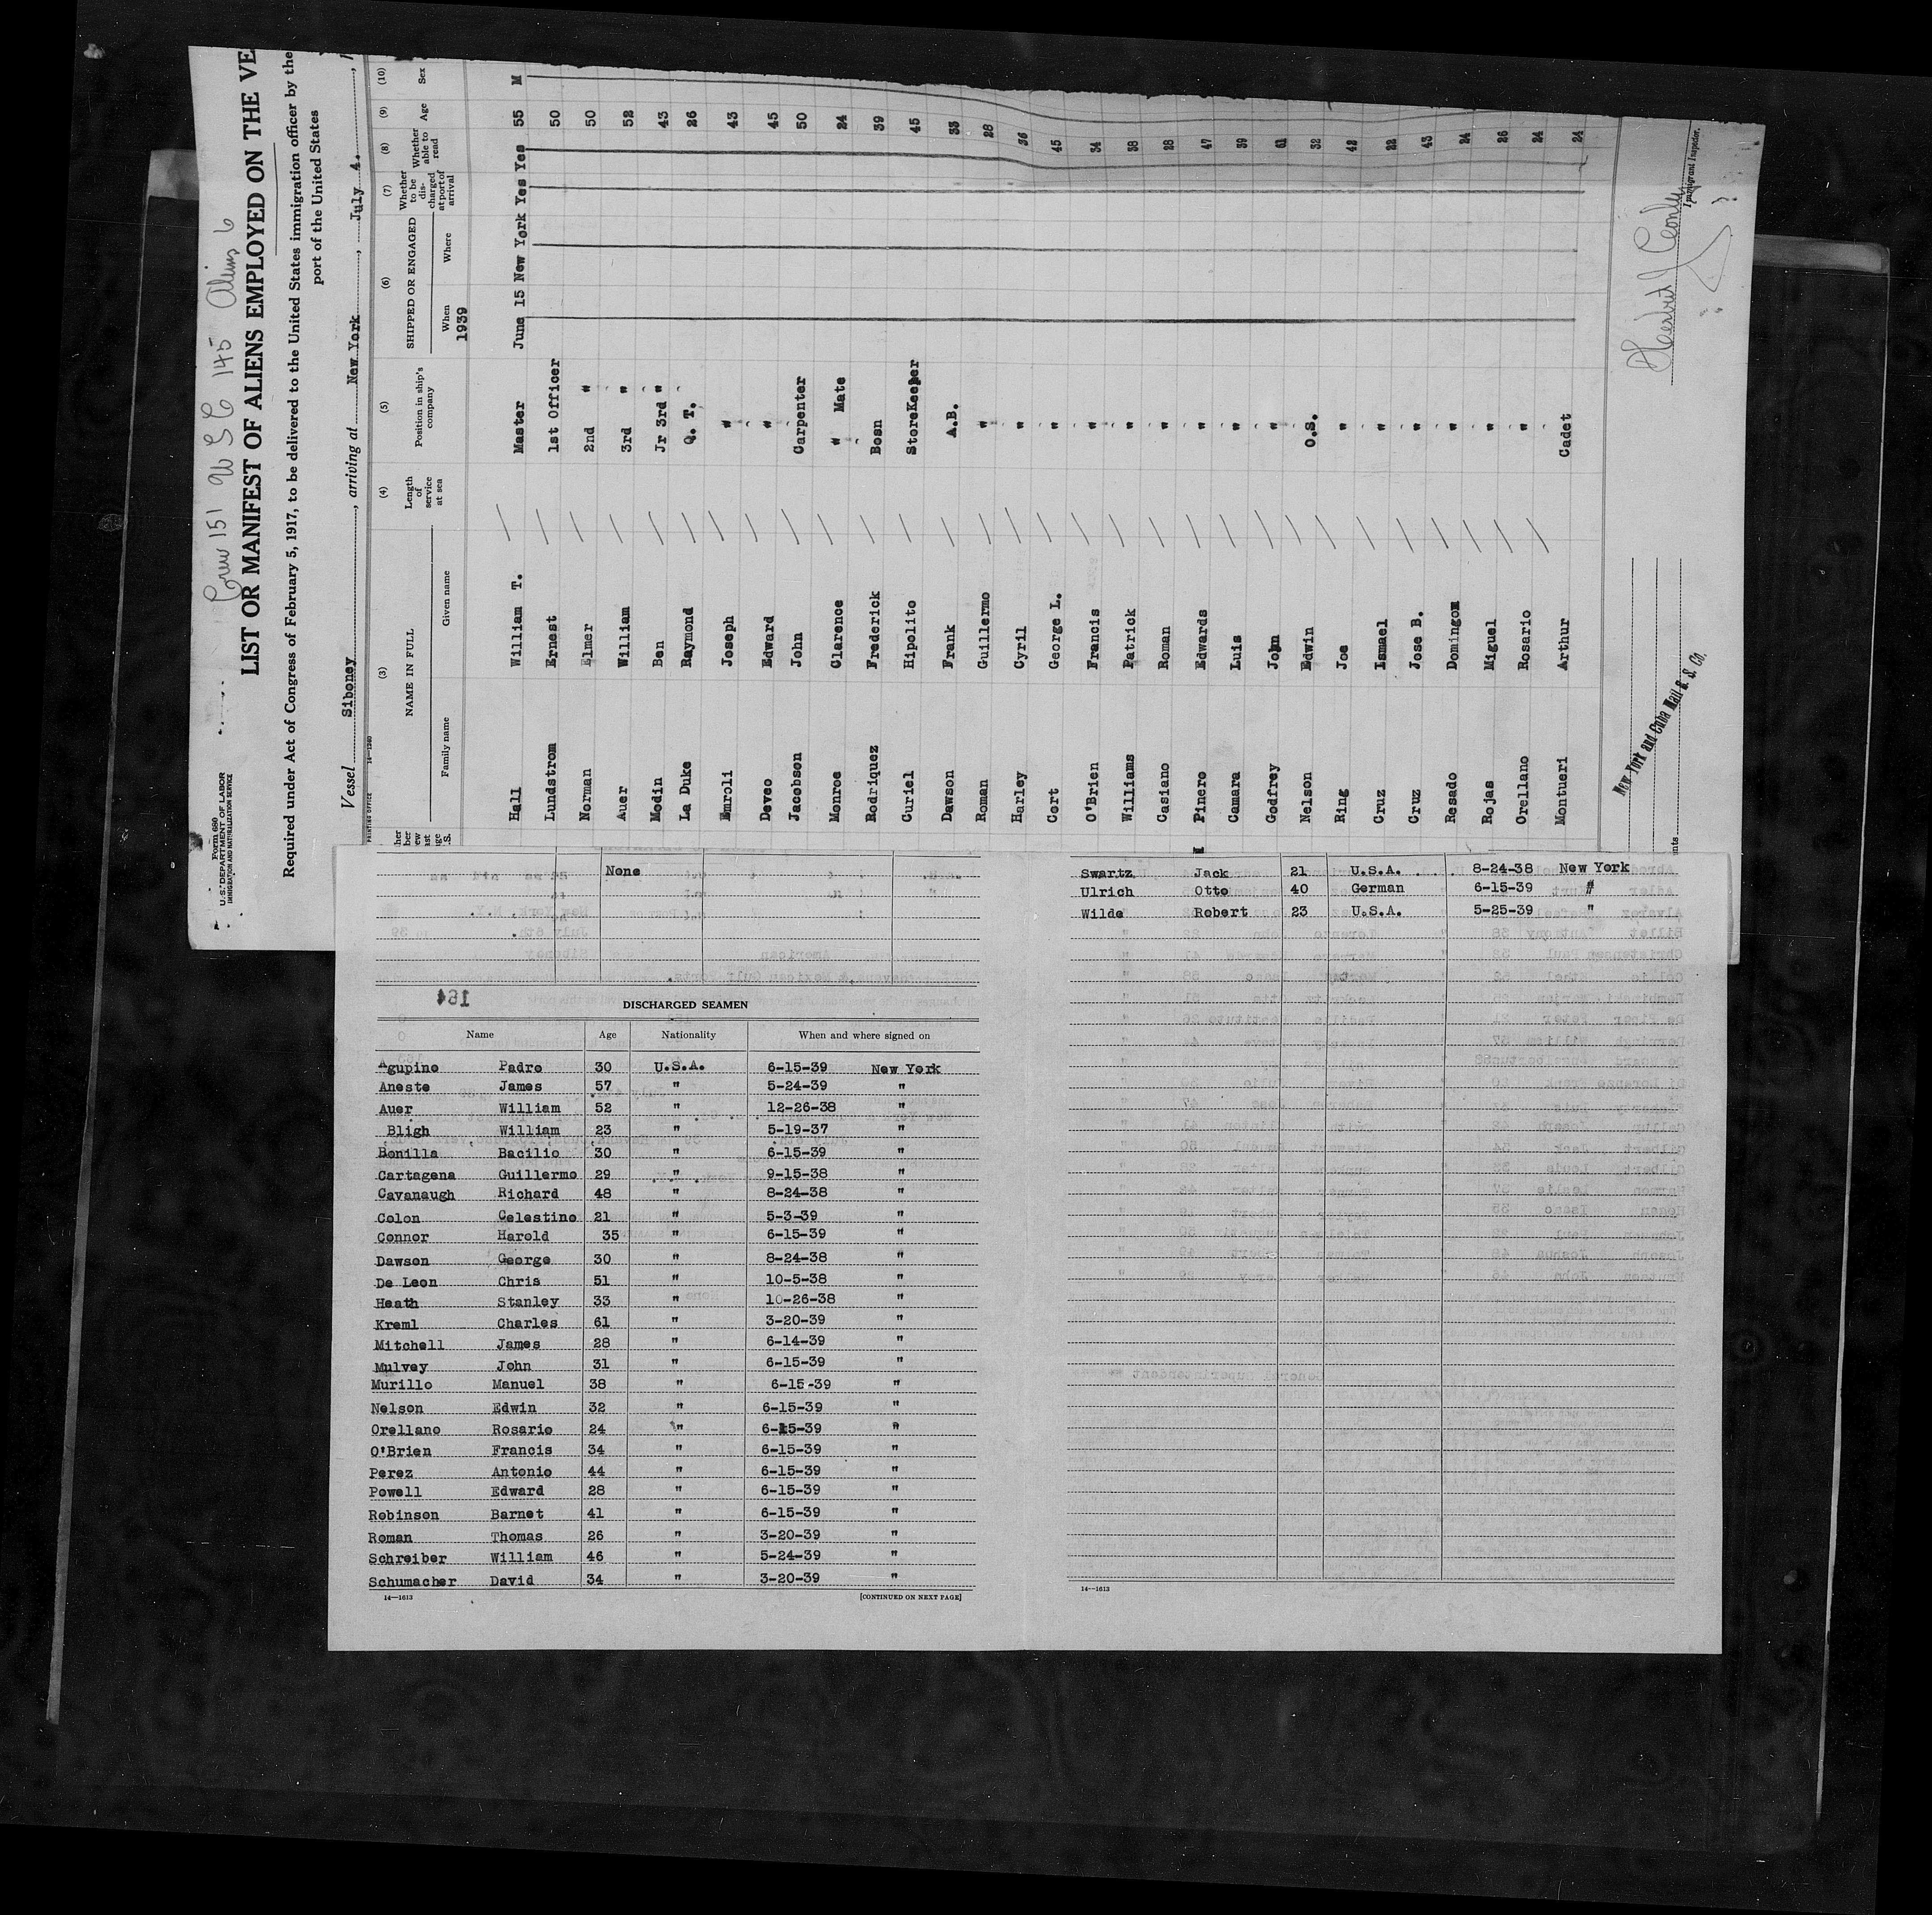 Crew 151 U S C 145 Aliens 6
Form 680
U.S. DEPARTMENT OF LABOR
IMMIGRATION AND NATURALIZATION SERVICE
LIST OR MANIFEST OF ALIENS EMPLOYED ON THE VE
Required under Act of Congress of February 5, 1917, to be delivered to the United States immigration officer by the
port of the United States
Vessel Siboney, arriving at New York, July 4.,
PRINTING OFFICE 14—1240
(3) (4) (5) (6) (7) (8) (9) (10)
NAME IN FULL Length of service at sea Position in ship's company SHIPPED OR ENGAGED Whether to be discharged at port of arrival Whether able to read Age Sex
Family name Given name When Where
1939
Hall William T. Master June 15 New York Yes Yes 55 M
Lundstrom Ernest 1st Officer 50
Norman Elmer 2nd " 50
Auer William 3rd " 52
Modin Ben Jr 3rd " 43
La Duke Raymond Q. T. 26
Emroli Joseph " 43
Deveo Edward " 45
Jacobson John Carpenter 50
Monroe Clarence " Mate 24
Rodriquez Frederick Bosn 39
Curiel Hipolito StoreKeeper 45
Dawson Frank A.B. 33
Roman Guillermo " 28
Harley Cyril " 36
Cort George L. " 45
O'Brien Francis " 34
Williams Patrick " 38
Casiano Roman " 28
Pinero Edwards " 47
Camara Luis " 39
Godfrey John " 61
Nelson Edwin O.S. 32
Ring Joe " 42
Cruz Ismael " 22
Cruz Jose B. " 43
Resado Domingom " 24
Rojas Miguel " 26
Orellano Rosario " 24
Montueri Arthur Cadet 24
New York and Cuba Mail S. S. Co.
Immigrant Inspector.
None
DISCHARGED SEAMEN
Name Age Nationality When and where signed on
Agupino Padro 30 U.S.A. 6-15-39 New York
Aneste James 57 " 5-24-39 "
Auer William 52 " 12-26-38 "
Bligh William 23 " 5-19-37 "
Bonilla Bacilio 30 " 6-15-39 "
Cartagena Guillermo 29 " 9-15-38 "
Cavanaugh Richard 48 " 8-24-38 "
Colon Celestino 21 " 5-3-39 "
Connor Harold 35 " 6-15-39 "
Dawson George 30 " 8-24-38 "
De Leon Chris 51 " 10-5-38 "
Heath Stanley 33 " 10-26-38 "
Kreml Charles 61 " 3-20-39 "
Mitchell James 28 " 6-14-39 "
Mulvey John 31 " 6-15-39 "
Murillo Manuel 38 " 6-15-39 "
Nelson Edwin 32 " 6-15-39 "
Orellano Rosario 24 " 6-15-39 "
O'Brien Francis 34 " 6-15-39 "
Perez Antonio 44 " 6-15-39 "
Powell Edward 28 " 6-15-39 "
Robinson Barnet 41 " 6-15-39 "
Roman Thomas 26 " 3-20-39 "
Schreiber William 46 " 5-24-39 "
Schumacher David 34 " 3-20-39 "
14—1613 [CONTINUED ON NEXT PAGE]
Swartz Jack 21 U.S.A. 8-24-38 New York
Ulrich Otto 40 German 6-15-39 "
Wilde Robert 23 U.S.A. 5-25-39 "
14—1613